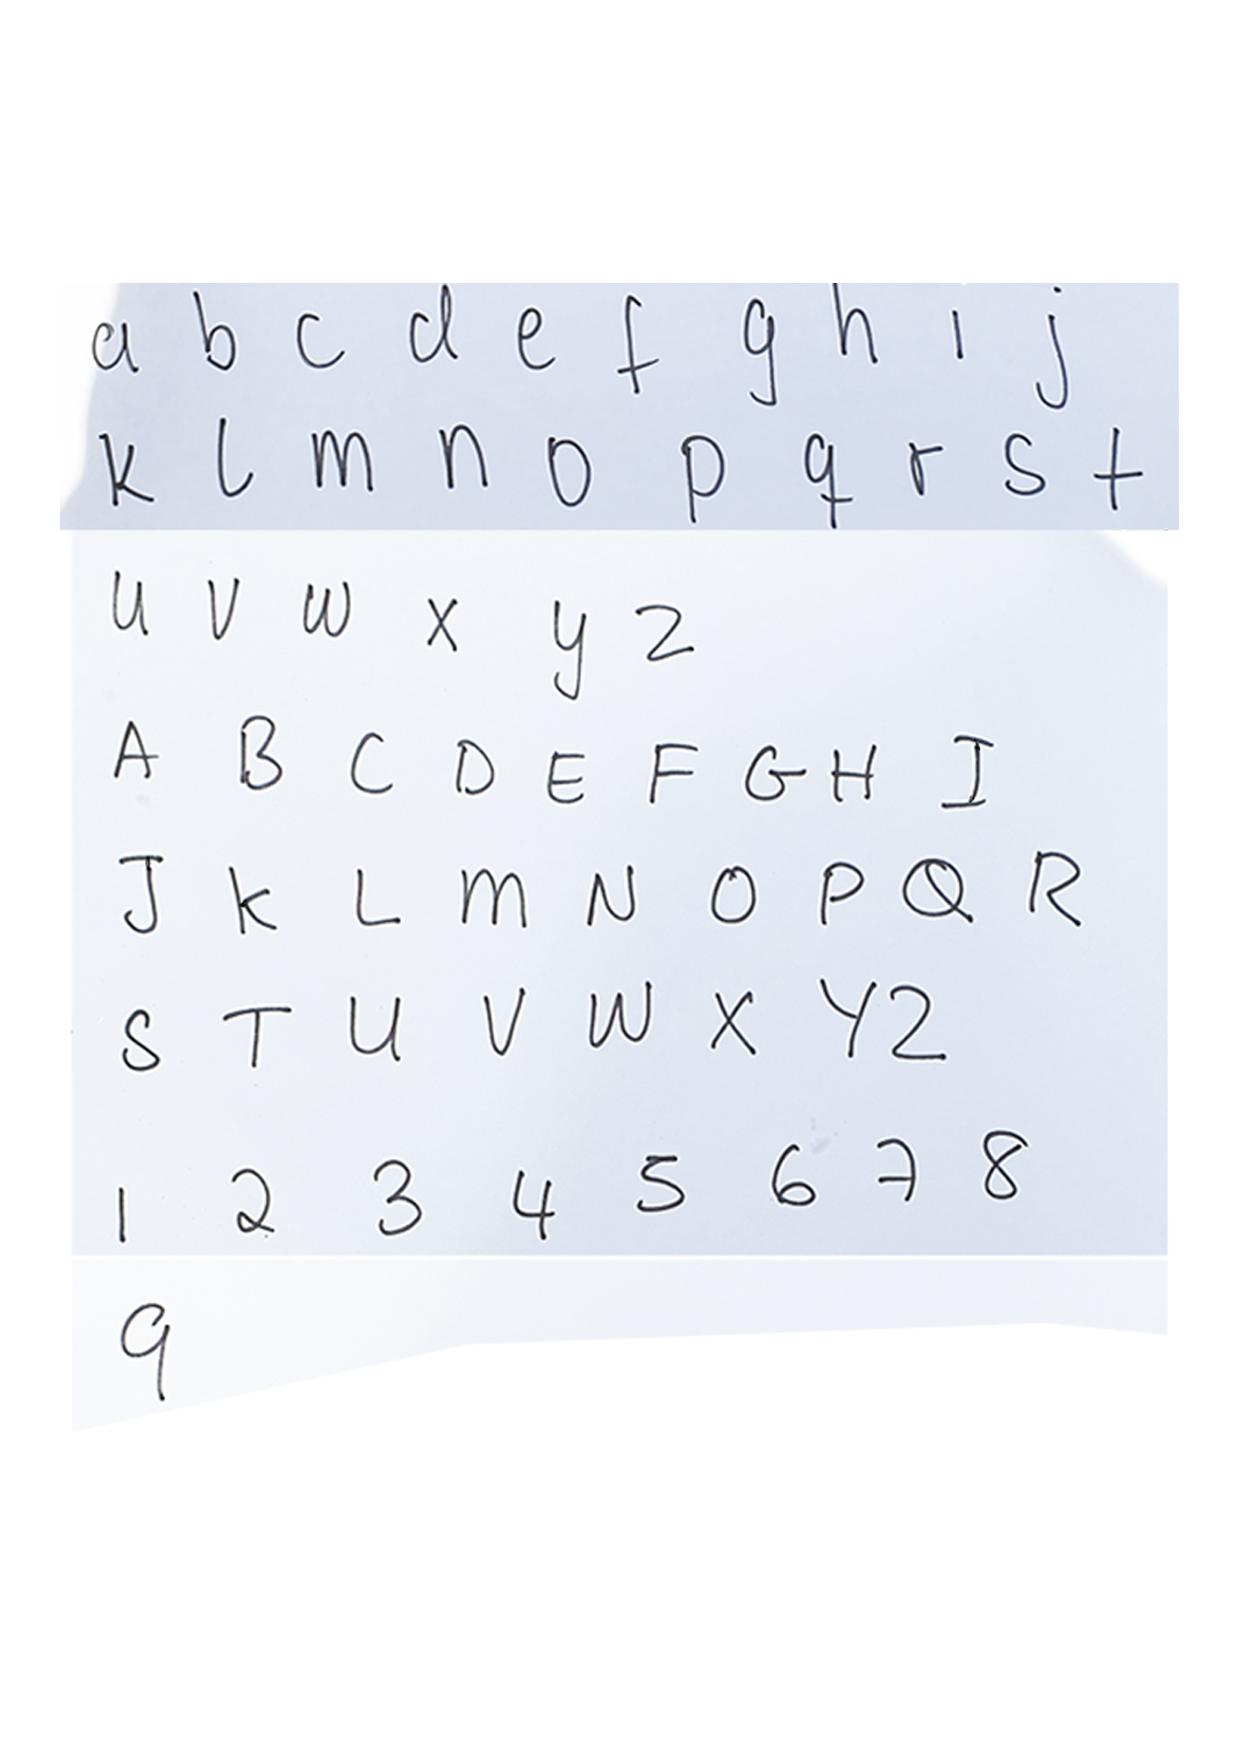 a b c d e f g h i j
k l m n o p q r s t
u v w x y z
A B C D E F G H I
J K L M N O P Q R
S T U V W X Y Z
1 2 3 4 5 6 7 8
9